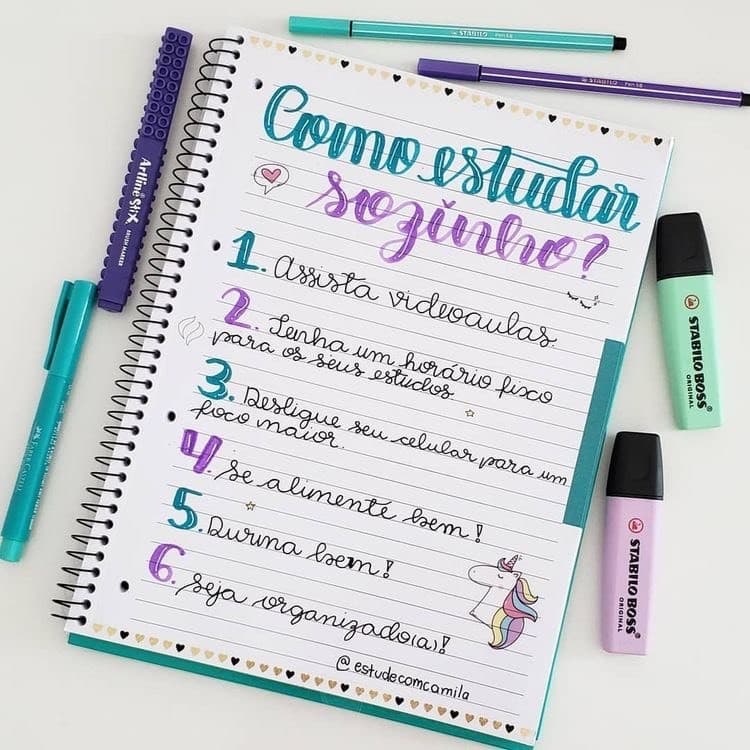 STABILO Pen 68
STABILO Pen 68
Como estudar
sozinho?
1. Assista videoaulas.
2. Tenha um horário fixo
para os seus estudos
3. Desligue seu celular para um
foco maior.
4. Se alimente bem!
5. Durma bem!
6. Seja organizado(a)!
@estudecomcamila
Artline Stix
BRUSH MARKER
FABER-CASTELL
STABILO BOSS
ORIGINAL
STABILO BOSS
ORIGINAL